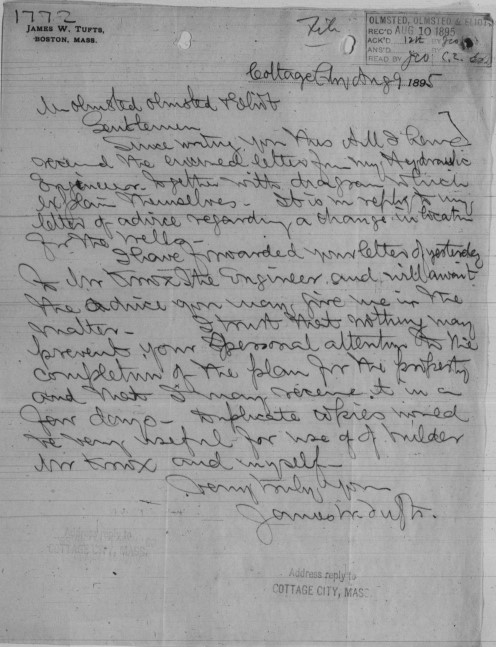 1772
JAMES W. TUFTS,
BOSTON, MASS.
File
OLMSTED, OLMSTED & ELIOT
REC'D AUG 10 1895
ACK'D 12th BY
ANS'D BY
READ BY JCO
Cottage City Aug 9 1895
Mr Olmsted Olmsted & Eliot
Gentlemen
Since writing you this A.M. I have
received the enclosed letter from my Hydraulic
Engineer together with diagram which
explain themselves - It is in reply to my
letter of advice regarding a change in location
for the wells -
I have forwarded your letter of yesterday
to Mr Knox the Engineer and will await
the advice you may give me in the
matter - I trust that nothing may
prevent your personal attention to the
completion of the plan for the property
and that I may receive it in a
few days - Duplicate copies would
be very useful for use of builder
Mr Knox and myself -
Very truly yours
James W. Tufts.
Address reply to
COTTAGE CITY, MASS.
Address reply to
COTTAGE CITY, MASS.